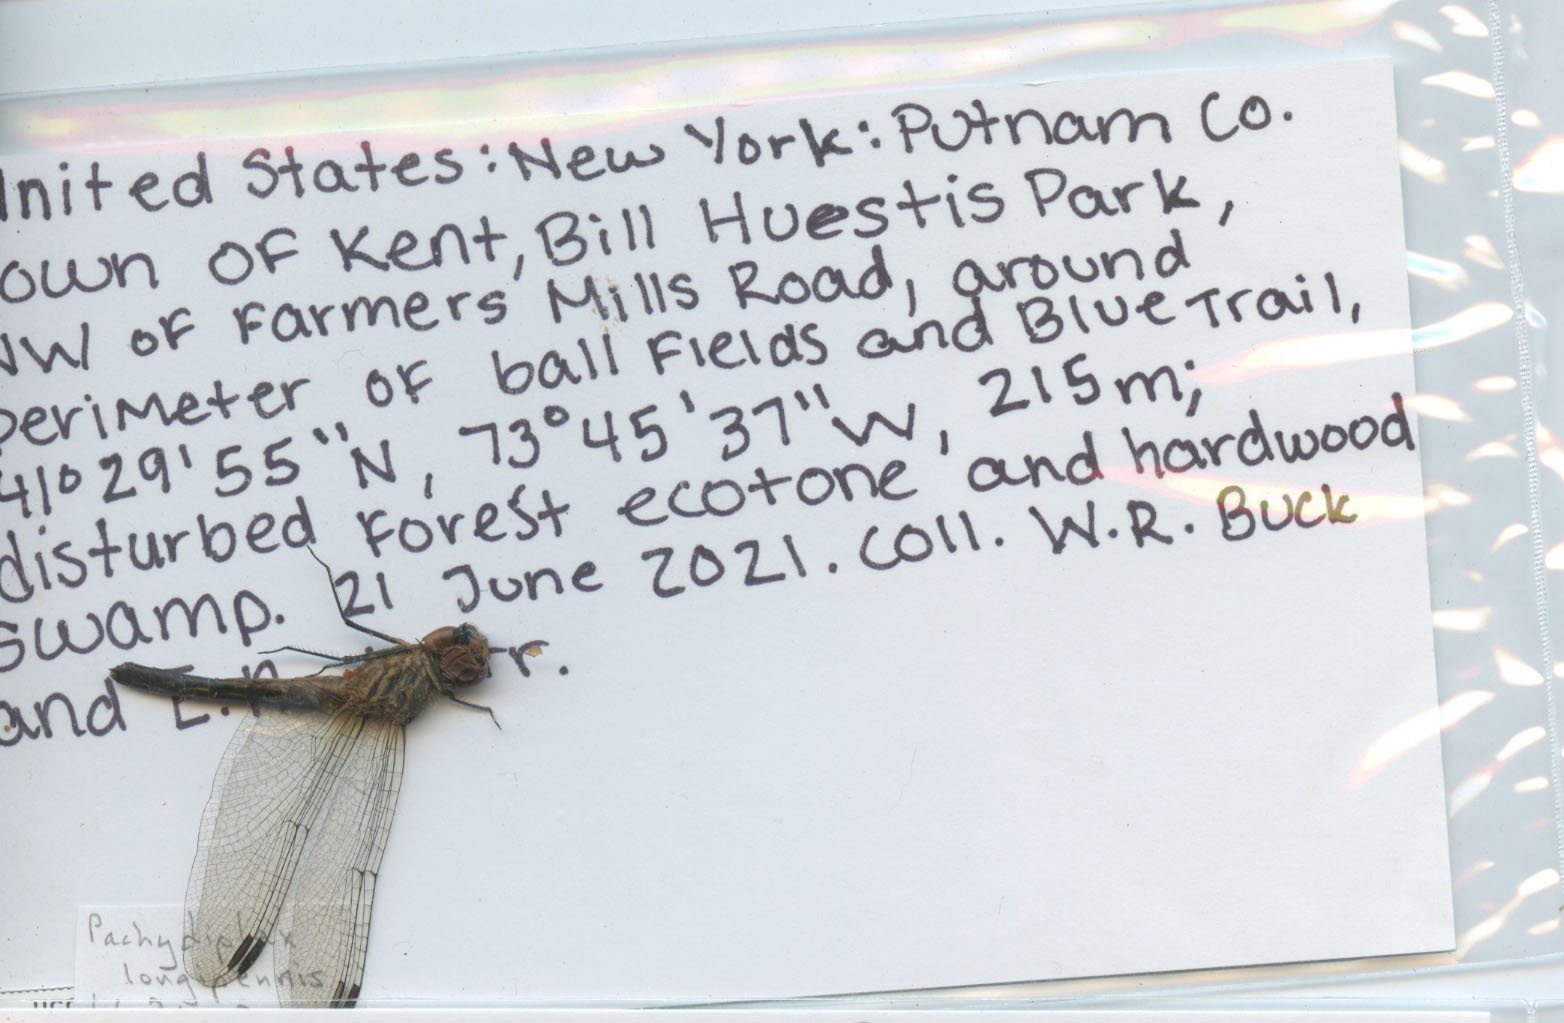 United States: New York: Putnam Co.
own of Kent, Bill Huestis Park,
NW of Farmers Mills Road, around
perimeter of ball fields and Blue Trail,
41°29'55"N, 73°45'37"W, 215m;
disturbed forest ecotone and hardwood
swamp. 21 June 2021. Coll. W.R. Buck
and
Pachydiplax
longipennis